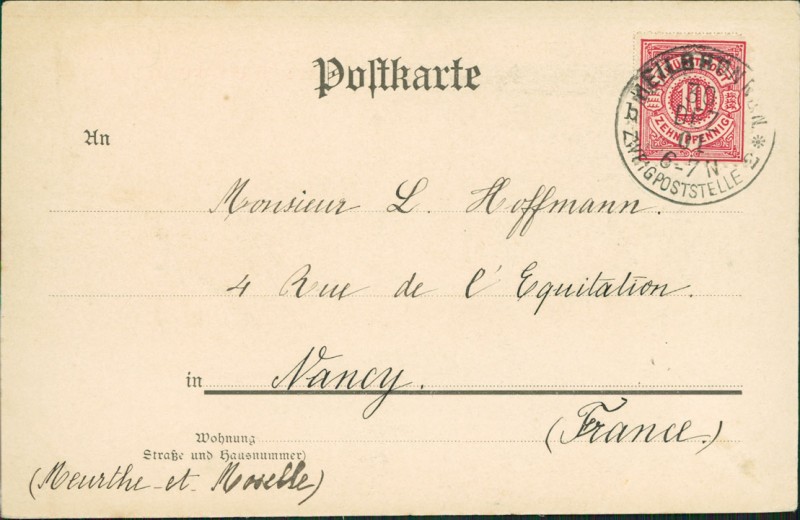 Postkarte
K. WÜRTT. POST
10
ZEHN PFENNIG
HEILBRONN
01
6-7 N
ZWEIGPOSTSTELLE 2
An
Monsieur L. Hoffmann.
4 Rue de l'Equitation.
in Nancy.
(France.)
Wohnung
Straße und Hausnummer)
(Meurthe-et-Moselle)